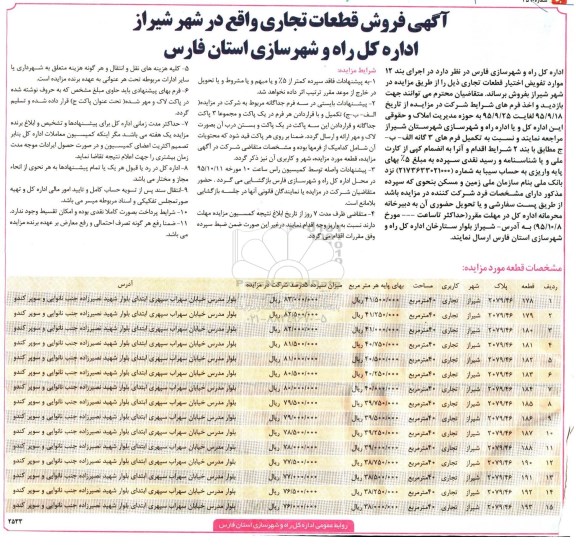 آگهی فروش قطعات تجاری واقع در شهر شیراز
اداره کل راه و شهرسازی استان فارس
اداره کل راه و شهرسازی فارس در نظر دارد در اجرای بند ۱۲
موارد تفویض اختیار قطعات تجاری ذیل را از طریق مزایده در
شهر شیراز بفروش برساند. متقاضیان محترم می توانند جهت
بازدید و اخذ فرم های شرایط شرکت در مزایده از تاریخ
۹۵/۹/۱۸ لغایت ۹۵/۹/۲۵ به حوزه مدیریت املاک و حقوقی
این اداره کل و یا اداره راه و شهرسازی شهرستان شیراز
مراجعه نمایند و نسبت به تکمیل فرم های ۳ گانه الف - ب-
ج مطابق با بند ۲ شرایط اقدام و آنرا به انضمام کپی از کارت
ملی و یا شناسنامه و رسید نقدی سپرده به مبلغ ۵٪ بهای
پایه واریزی به حساب سیبا به شماره (۲۱۷۳۶۳۳۰۲۱۰۰۰) نزد
بانک ملی بنام سازمان ملی زمین و مسکن بنحوی که سپرده
مذکور دارای مشخصات فرد شرکت کننده در مزایده باشد
از طریق پست سفارشی و یا تحویل حضوری آن به دبیرخانه
محرمانه اداره کل در مهلت مقرر(حداکثر تاساعت --- مورخ
۹۵/۱۰/۸) به آدرس- شیراز بلوار ستارخان اداره کل راه و
شهرسازی استان فارس ارسال نمایند.
شرایط مزایده:
۱-به پیشنهادات فاقد سپرده کمتر از ۵٪ و یا مبهم و یا مشروط و یا تحویل
در خارج از موعد مقرر ترتیب اثر داده نخواهد شد.
۲- پیشنهادات بایستی در سه فرم جداگانه مربوط به شرکت در مزایده(
الف- ب-ج) تکمیل و با قرار دادن هر فرم در یک پاکت و مجموعا ۳ پاکت
جداگانه و قرار دادن این سه پاکت در یک پاکت و بستن درب آن بصورت
لاک و مهر ارائه و ارسال گردد. ضمنا بر روی هر پاکت قید شود که محتویات
آن شامل کدامیک از فرمها بوده و مشخصات متقاضی شرکت در آگهی
مزایده، قطعه مورد مزایده، شهر و کاربری آن نیز ذکر گردد.
۳- پیشنهادات واصله توسط کمیسیون راس ساعت ۱۰ مورخه ۹۵/۱۰/۱۱
در محل اداره کل راه و شهرسازی فارس بازگشایی می گردد . حضور
متقاضیان شرکت در مزایده یا نمایندگان قانونی آنها در جلسه بازگشایی
بلامانع است.
۴- متقاضی ظرف مدت ۷ روز از تاریخ ابلاغ نتیجه کمیسیون مزایده مهلت
دارند نسبت به واریز وجه اقدام نمایند درغیر این صورت ضمن ضبط سپرده
وفق مقررات اقدام می گردد.
۵- کلیه هزینه های نقل و انتقال و هر گونه هزینه متعلق به شهرداری یا
سایر ادارات مربوطه تحت هر عنوانی به عهده برنده مزایده است.
۶- فرم بهای پیشنهادی باید حاوی مبلغ مشخص که به حروف نوشته شده
در پاکت لاک و مهر شده( تحت عنوان پاکت ج) قرار داده شده و تسلیم
گردد.
۷- حداکثر مدت زمانی اداره کل برای پیشنهادها و تشخیص و ابلاغ برنده
مزایده یک هفته می باشد مگر اینکه کمیسیون معاملات اداره کل بنابر
تصمیم اکثریت اعضای کمیسیون و در صورت حصول ایرادات موجه مدت
زمان بیشتری را جهت اعلام نتیجه تقاضا نماید.
۸- اداره کل در رد یا قبول هر یک یا تمام پیشنهادها به هر نحوی از انحاء
مجاز و مختار می باشد.
۹- انتقال سند پس از تسویه حساب کامل و تایید امور مالی اداره کل و تهیه
صورتمجلس تفکیکی و اسناد مربوطه میسر می باشد.
۱۰- شرایط پرداخت بصورت کاملا نقدی بوده و امکان تقسیط وجود ندارد.
۱۱- ضمنا رفع هر گونه تصرف احتمالی و رفع معارض بر عهده برنده مزایده
می باشد.
مشخصات قطعه مورد مزایده:
ردیف قطعه پلاک شهر کاربری مساحت بهای پایه هر متر مربع میزان سپرده ۵درصد شرکت در مزایده آدرس
۱ ۱۷۸ ۲۰۷۹/۴۶ شیراز تجاری ۴۰مترمربع ۴۱/۵۰۰/۰۰۰ ریال ۸۳/۰۰۰/۰۰۰ ریال بلوار مدرس خیابان سهراب سپهری ابتدای بلوار شهید نصیرزاده جنب نانوایی و سوپر کندو
۲ ۱۷۹ ۲۰۷۹/۴۶ شیراز تجاری ۴۰مترمربع ۴۱/۲۵۰/۰۰۰ ریال ۸۲/۵۰۰/۰۰۰ ریال بلوار مدرس خیابان سهراب سپهری ابتدای بلوار شهید نصیرزاده جنب نانوایی و سوپر کندو
۳ ۱۸۰ ۲۰۷۹/۴۶ شیراز تجاری ۴۰مترمربع ۴۱/۰۰۰/۰۰۰ ریال ۸۲/۰۰۰/۰۰۰ ریال بلوار مدرس خیابان سهراب سپهری ابتدای بلوار شهید نصیرزاده جنب نانوایی و سوپر کندو
۴ ۱۸۱ ۲۰۷۹/۴۶ شیراز تجاری ۴۰مترمربع ۴۰/۷۵۰/۰۰۰ ریال ۸۱/۵۰۰/۰۰۰ ریال بلوار مدرس خیابان سهراب سپهری ابتدای بلوار شهید نصیرزاده جنب نانوایی و سوپر کندو
۵ ۱۸۲ ۲۰۷۹/۴۶ شیراز تجاری ۴۰مترمربع ریال ریال بلوار مدرس خیابان سهراب سپهری ابتدای بلوار شهید نصیرزاده جنب نانوایی و سوپر کندو
۶ ۱۸۳ ۲۰۷۹/۴۶ شیراز تجاری ۴۰مترمربع ریال ریال بلوار مدرس خیابان سهراب سپهری ابتدای بلوار شهید نصیرزاده جنب نانوایی و سوپر کندو
۷ ۱۸۴ ۲۰۷۹/۴۶ شیراز تجاری ۴۰مترمربع ریال ریال بلوار مدرس خیابان سهراب سپهری ابتدای بلوار شهید نصیرزاده جنب نانوایی و سوپر کندو
۸ ۱۸۵ ۲۰۷۹/۴۶ شیراز تجاری ۴۰مترمربع ۳۹/۷۵۰/۰۰۰ ریال ۷۹/۵۰۰/۰۰۰ ریال بلوار مدرس خیابان سهراب سپهری ابتدای بلوار شهید نصیرزاده جنب نانوایی و سوپر کندو
۹ ۱۸۶ ۲۰۷۹/۴۶ شیراز تجاری ۴۰مترمربع ۳۹/۵۰۰/۰۰۰ ریال ۷۹/۰۰۰/۰۰۰ ریال بلوار مدرس خیابان سهراب سپهری ابتدای بلوار شهید نصیرزاده جنب نانوایی و سوپر کندو
۱۰ ۱۸۷ ۲۰۷۹/۴۶ شیراز تجاری ۴۰مترمربع ۳۹/۲۵۰/۰۰۰ ریال ۷۸/۵۰۰/۰۰۰ ریال بلوار مدرس خیابان سهراب سپهری ابتدای بلوار شهید نصیرزاده جنب نانوایی و سوپر کندو
۱۱ ۱۸۸ ۲۰۷۹/۴۶ شیراز تجاری ۴۰مترمربع ۳۹/۰۰۰/۰۰۰ ریال ۷۸/۰۰۰/۰۰۰ ریال بلوار مدرس خیابان سهراب سپهری ابتدای بلوار شهید نصیرزاده جنب نانوایی و سوپر کندو
۱۲ ۱۹۰ ۲۰۷۹/۴۶ شیراز تجاری ۴۰مترمربع ۳۸/۷۵۰/۰۰۰ ریال ۷۷/۵۰۰/۰۰۰ ریال بلوار مدرس خیابان سهراب سپهری ابتدای بلوار شهید نصیرزاده جنب نانوایی و سوپر کندو
۱۳ ۱۹۱ ۲۰۷۹/۴۶ شیراز تجاری ۴۰مترمربع ۳۸/۵۰۰/۰۰۰ ریال ۷۷/۰۰۰/۰۰۰ ریال بلوار مدرس خیابان سهراب سپهری ابتدای بلوار شهید نصیرزاده جنب نانوایی و سوپر کندو
۱۴ ۱۹۲ ۲۰۷۹/۴۶ شیراز تجاری ۴۰مترمربع ۳۸/۲۵۰/۰۰۰ ریال ۷۶/۵۰۰/۰۰۰ ریال بلوار مدرس خیابان سهراب سپهری ابتدای بلوار شهید نصیرزاده جنب نانوایی و سوپر کندو
۱۵ ۱۹۳ ۲۰۷۹/۴۶ شیراز تجاری ۴۰مترمربع ۳۸/۰۰۰/۰۰۰ ریال ۷۶/۰۰۰/۰۰۰ ریال بلوار مدرس خیابان سهراب سپهری ابتدای بلوار شهید نصیرزاده جنب نانوایی و سوپر کندو
روابط عمومی اداره کل راه و شهرسازی استان فارس
۲۵۳۳